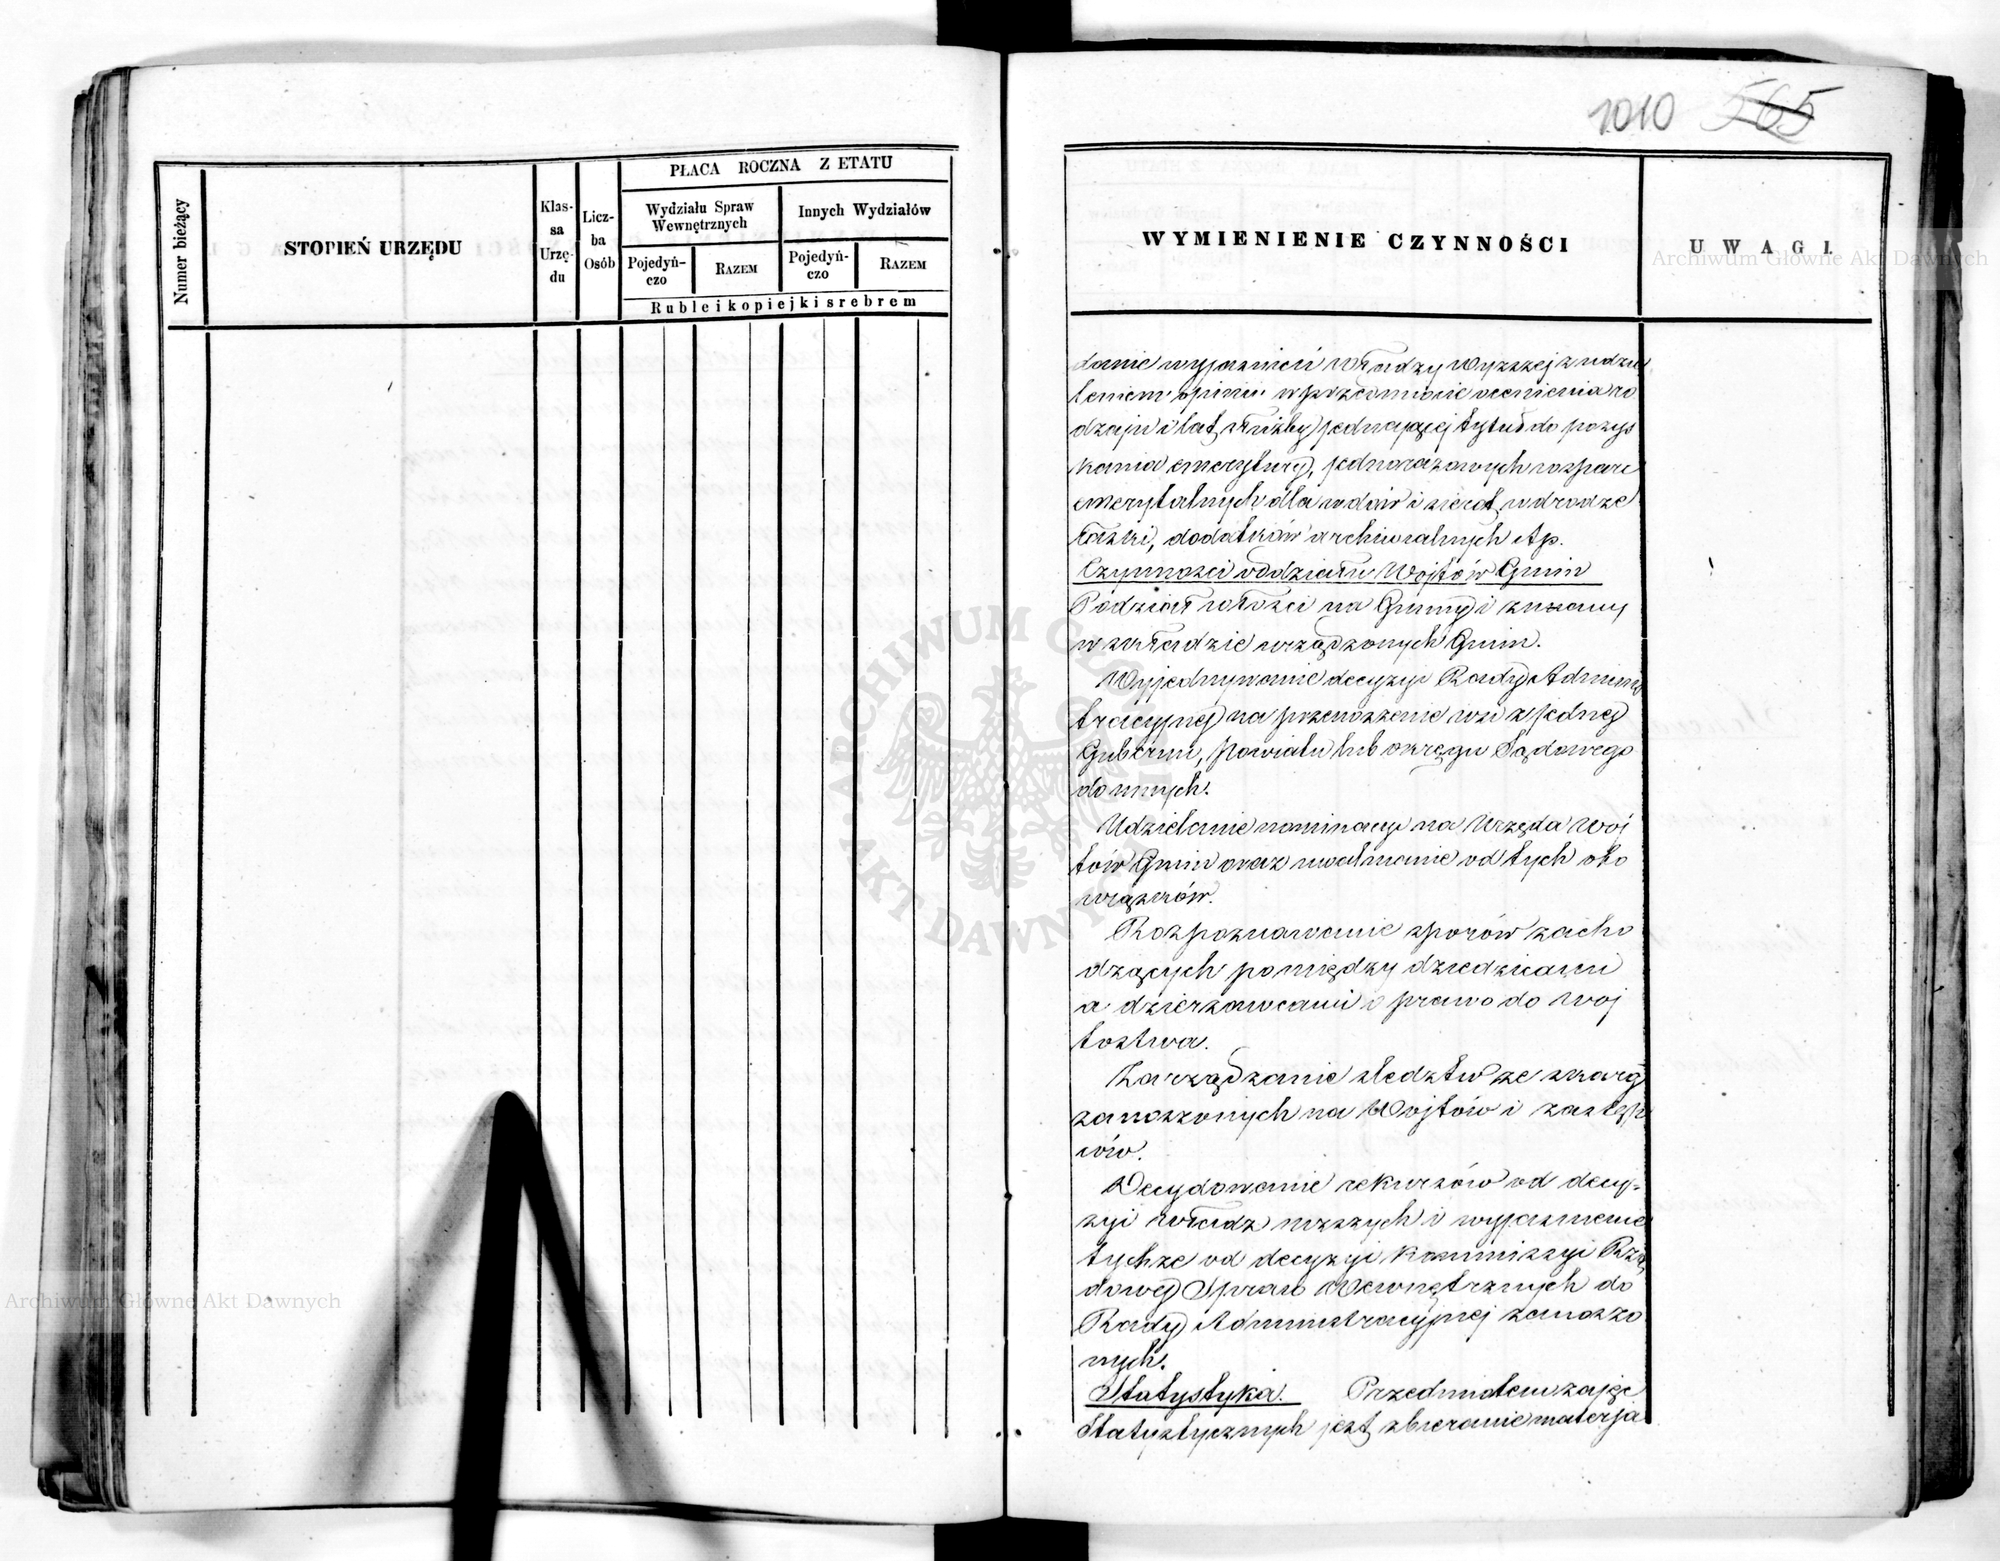 1010 565
Numer bieżący
STOPIEŃ URZĘDU
Klas-
sa
Urzę-
du
Licz-
ba
Osób
PŁACA ROCZNA Z ETATU
Wydziału Spraw
Wewnętrznych
Innych Wydziałów
Pojedyń-
czo
RAZEM
Pojedyń-
czo
RAZEM
Ruble i kopiejki srebrem
WYMIENIENIE CZYNNOŚCI
UWAGI
danie wyjaśnień Władzy Wyższej z udzie
leniem opinii w przedmiocie ocenienia ro
dzaju i lat służby jednającej tytuł do pozys
kania emerytury, jednorazowych wsparć
emerytalnych dla wdów i sierot, w drodze
łaski, dodatków archiwalnych itp.
Czynności oddziału Wojtów Gmin
Podział włości na Gminy i zmiany
w składzie urządzonych Gmin.
Wyjednywanie decyzyi Rady Adminis
tracyjnej na przenoszenie wsi z jednej
Gubernii, Powiatu lub okręgu Sądowego
do innych.
Udzielanie nominacyi na Urzęda Woj
tów Gmin oraz uwalnianie od tych obo
wiązków.
Rozpoznawanie sporów zacho
dzących pomiędzy dziedzicami
a dzierżawcami o prawo do Woj
tostwa.
Zarządzanie śledztw ze skarg
zanoszonych na Wojtów i zastęp
ców.
Decydowanie rekursów od decy-
zyi władz niższych i wyjaśnienie
tychże od decyzyi Kommissyi Rzą
dowej Spraw Wewnętrznych do
Rady Administracyjnej zanoszo
nych.
Statystyka. Przedmiotem zajęć
Statystycznych jest zbieranie materja
ARCHIWUM GŁÓWNE AKT DAWNYCH
Archiwum Główne Akt Dawnych
Archiwum Główne Akt Dawnych